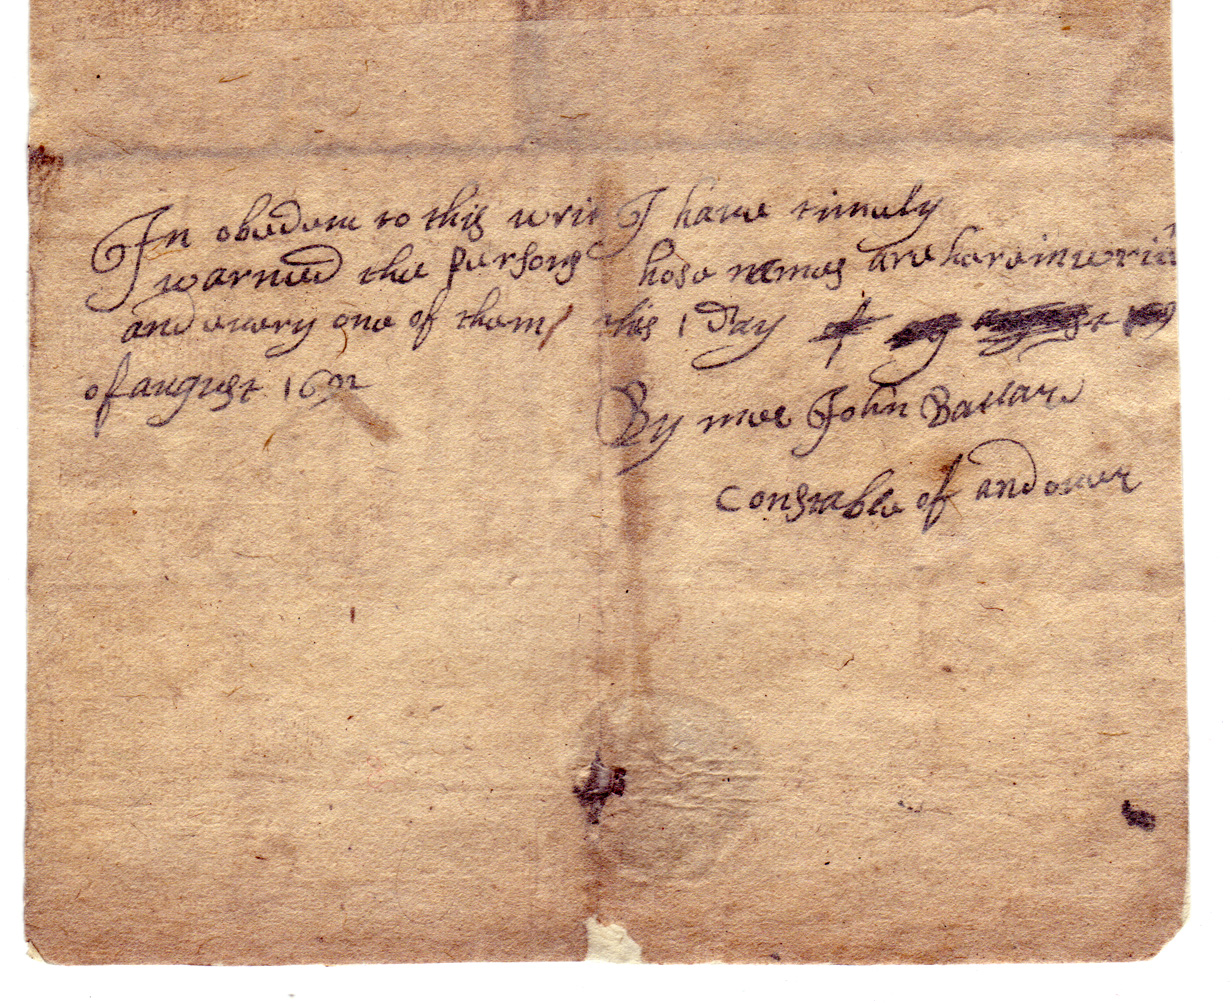 In obedem to this writ I haue timely
warned the persons hose nemes are harein writ
and euery one of them this 1 Day of
of august 1692
By mee John Ballard
Constable of andouer